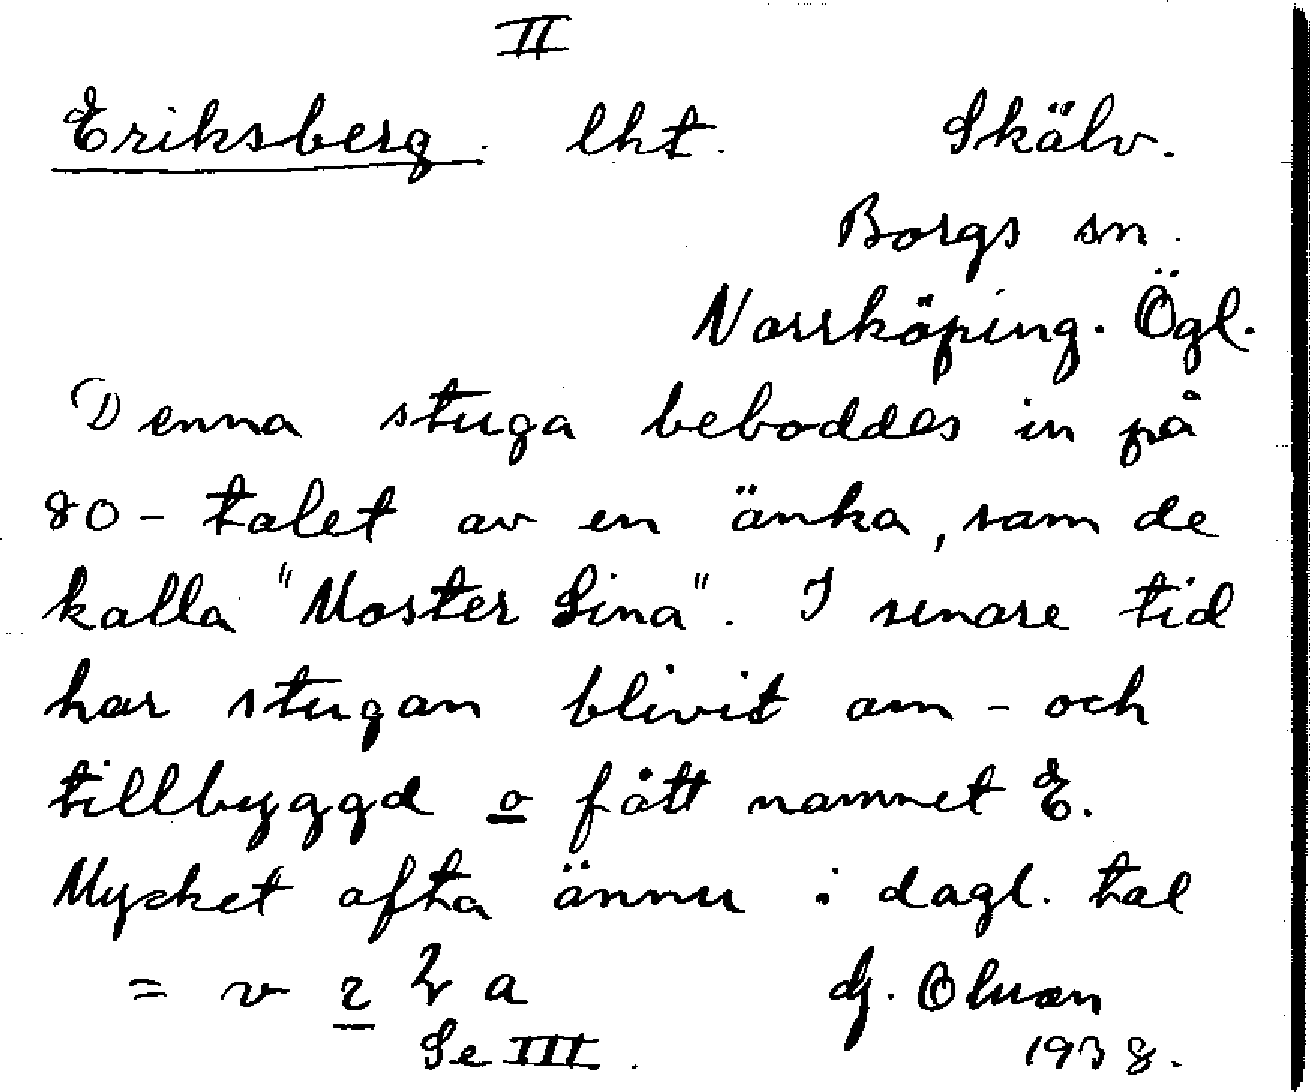 II
Eriksberg. lht. Skälv.
Borgs sn.
Norrköping. Ögl.
Denna stuga beboddes in på
80-talet av en änka, som de
kalla "Moster Lina". I senare tid
har stugan blivit om- och
tillbyggd o fått namnet E.
Mycket ofta ännu i dagl. tal
= v a
Se III.
1938.